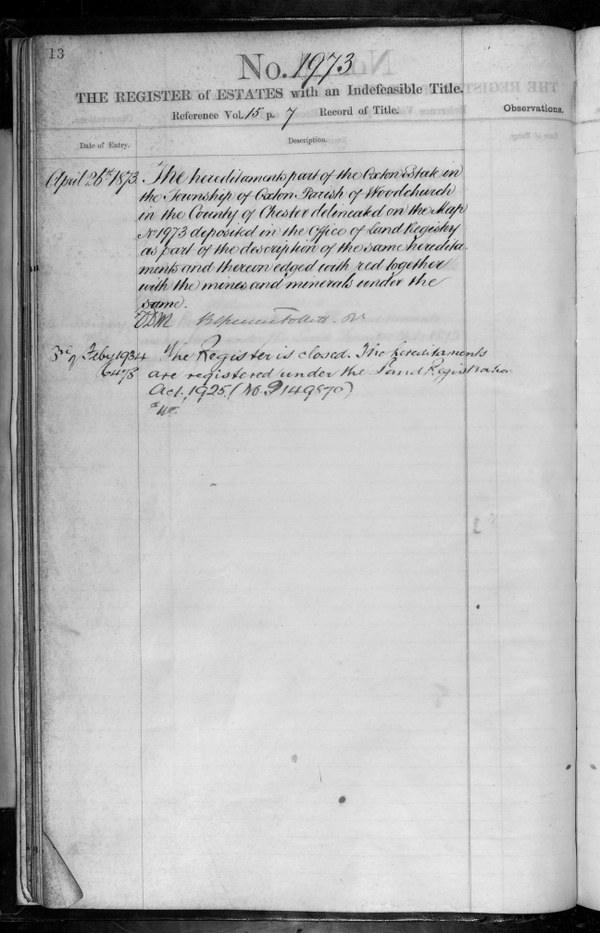 13
No. 1973
THE REGISTER of ESTATES with an Indefeasible Title.
Reference Vol. 15 p. 7 Record of Title.
Observations.
Date of Entry.
Description.
April 26th 1873. The hereditaments part of the Oxton Estate in
the Township of Oxton Parish of Woodchurch
in the County of Chester delineated on the Map
No 1973 deposited in the Office of Land Registry
as part of the description of the same heredita-
ments and thereon edged with red together
with the mines and minerals under the
same.
3rd of Feby 1934 The Register is closed. The hereditaments
6478 are registered under the Land Registration
Act, 1925. (No. P149870)